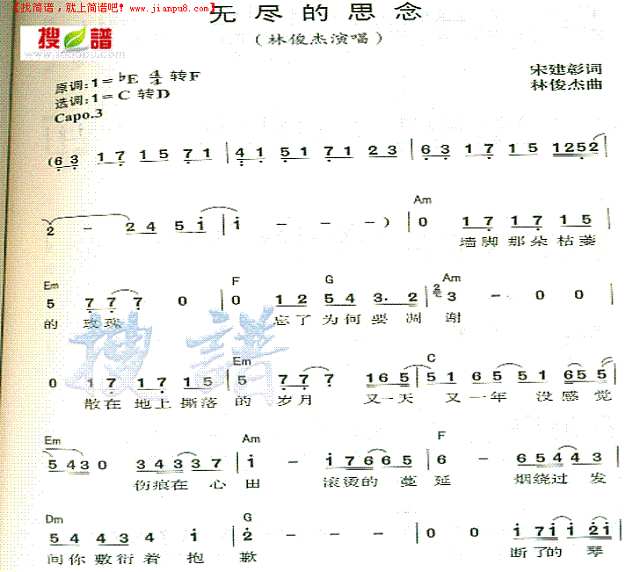 【找简谱，就上简谱吧！ www.jianpu8.com】
无尽的思念
搜谱
（林俊杰演唱）
原调：1=♭E 4/4 转F
选调：1=C 转D
Capo.3
宋建彰词
林俊杰曲
(6 3 1 7 1 5 7 1 | 4 1 5 1 7 1 2 3 | 6 3 1 7 1 5 1252
Am
2 - 2 4 5 i | i - - - ) | 0 1 7 1 7 1 5
墙脚那朵枯萎
Em F G Am
5 7 7 7 0 0 | 0 1 2 5 4 3. 2 | 3 - 0 0
的玫瑰 忘了为何要凋谢
搜谱
Em C
0 1 7 1 7 1 5 | 5 7 7 7 1 6 5 | 5 1 6 5 5 1 6 5 5
散在地上撕落的岁月 又一天又一年没感觉
Em Am F
5 4 3 0 3 4 3 3 5 | i - 1 7 6 6 5 | 6 - 4 5 4 4 3
伤痕在心田 滚烫的蔓延 烟绕过发
Dm G
5 4 4 3 4 i | 2 - - 0 | 0 i 7 i i 2 i
问你敷衍着抱歉 断了的琴